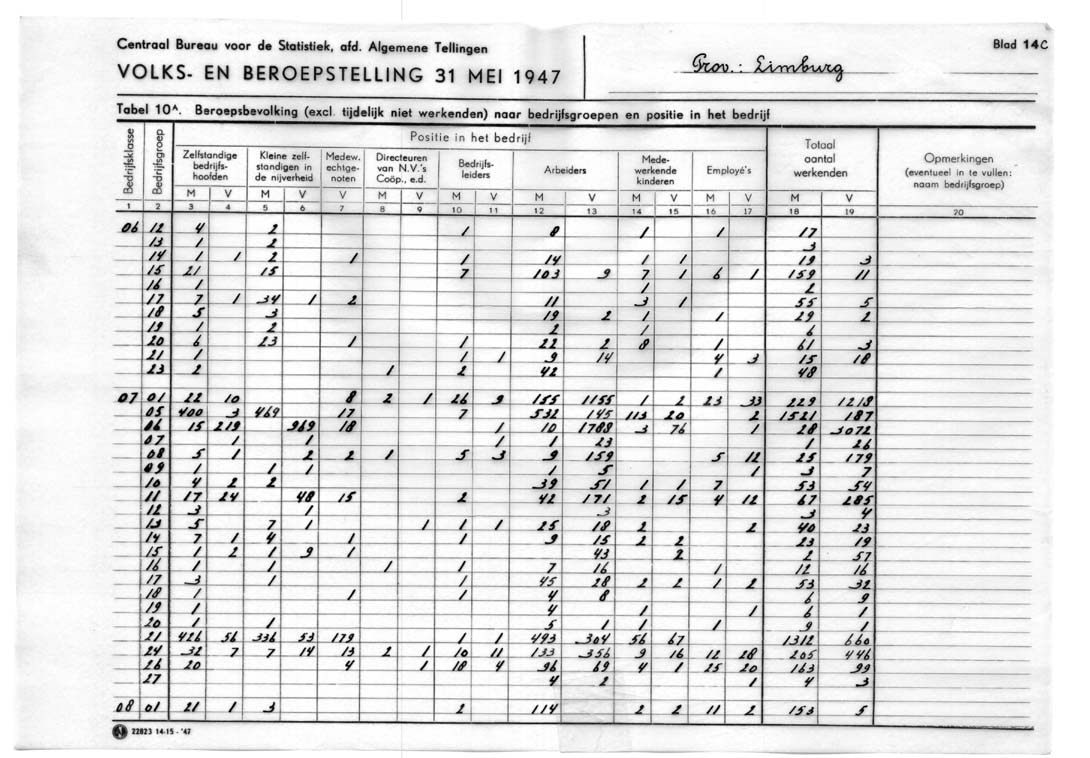 Centraal Bureau voor de Statistiek, afd. Algemene Tellingen
VOLKS- EN BEROEPSTELLING 31 MEI 1947
Prov.: Limburg
Blad 14C
Tabel 10A. Beroepsbevolking (excl. tijdelijk niet werkenden) naar bedrijfsgroepen en positie in het bedrijf
Bedrijfsklasse
Bedrijfsgroep
Positie in het bedrijf
Zelfstandige bedrijfs-hoofden
Kleine zelf-standigen in de nijverheid
Medew. echtge-noten
Directeuren van N.V.'s Coöp., e.d.
Bedrijfs-leiders
Arbeiders
Mede-werkende kinderen
Employé's
Totaal aantal werkenden
Opmerkingen (eventueel in te vullen: naam bedrijfsgroep)
M V M V V M V M V M V M V M V M V
1 2 3 4 5 6 7 8 9 10 11 12 13 14 15 16 17 18 19 20
06 12 4 2 1 8 1 1 17
13 1 2 3
14 1 1 2 1 1 14 1 1 19 3
15 21 15 7 103 9 7 1 6 1 159 11
16 1 1 2
17 7 1 34 1 2 11 3 1 55 5
18 5 3 19 2 1 1 29 2
19 1 2 2 1 6
20 6 23 1 1 22 2 8 1 61 3
21 1 1 1 9 14 4 3 15 18
23 2 1 2 42 1 48
07 01 22 10 8 2 1 26 9 155 1155 1 2 23 33 229 1218
05 400 3 469 17 7 532 145 113 20 2 1521 187
06 15 219 969 18 1 10 1788 3 76 1 28 3072
07 1 1 1 1 23 1 26
08 5 1 2 2 1 5 3 9 159 5 12 25 179
09 1 1 1 1 5 1 3 7
10 4 2 2 39 51 1 1 7 53 54
11 17 24 48 15 2 42 171 2 15 4 12 67 285
12 3 1 3 3 4
13 5 7 1 1 1 1 25 18 2 2 40 23
14 7 1 4 1 1 9 15 2 2 23 19
15 1 2 1 9 1 43 2 2 57
16 1 1 1 1 7 16 1 12 16
17 3 1 1 45 28 2 2 1 2 53 32
18 1 1 1 4 8 6 9
19 1 4 1 1 6 1
20 1 1 5 1 1 1 9 1
21 426 56 336 53 179 1 1 493 304 56 67 1312 660
24 32 7 7 14 13 2 1 10 11 133 356 9 16 12 28 205 446
26 20 4 1 18 4 96 69 4 1 25 20 163 99
27 4 2 1 4 3
08 01 21 1 3 2 114 2 2 11 2 153 5
22823 14-15 - '47